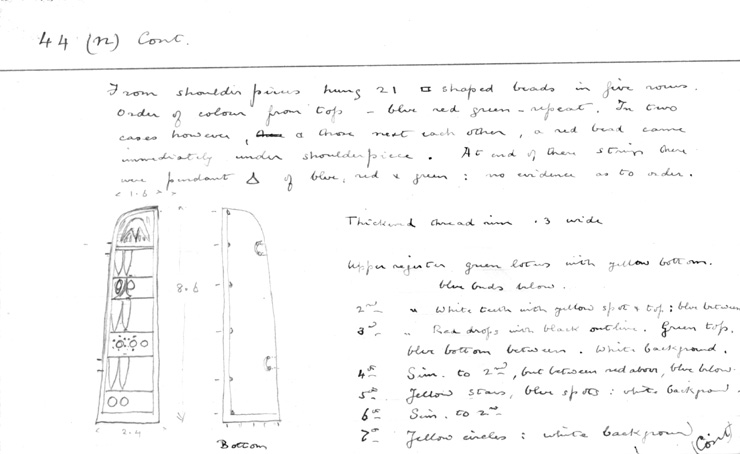 44 (n) Cont.
From shoulder pieces hung 21 shaped beads in five rows.
Order of colour from top - blue red green - repeat. In two
cases however, & those next each other, a red bead came
immediately under shoulderpiece. At end of these strings there
were pendant Δ of blue, red & green : no evidence as to order.
< 1.6 >
Thickened thread rim .3 wide
Upper register green lotus with yellow bottom.
blue buds below.
8.6
2nd " White teeth with yellow spot & top : blue between
3rd " Red drops with black outline. Green top,
blue bottom between. White background.
4th Sim. to 2nd, but between red above, blue below.
5th Yellow stars, blue spots : white background.
6th Sim. to 2nd
7th Yellow circles : white background
< 2.4 >
Bottom
(Cont)